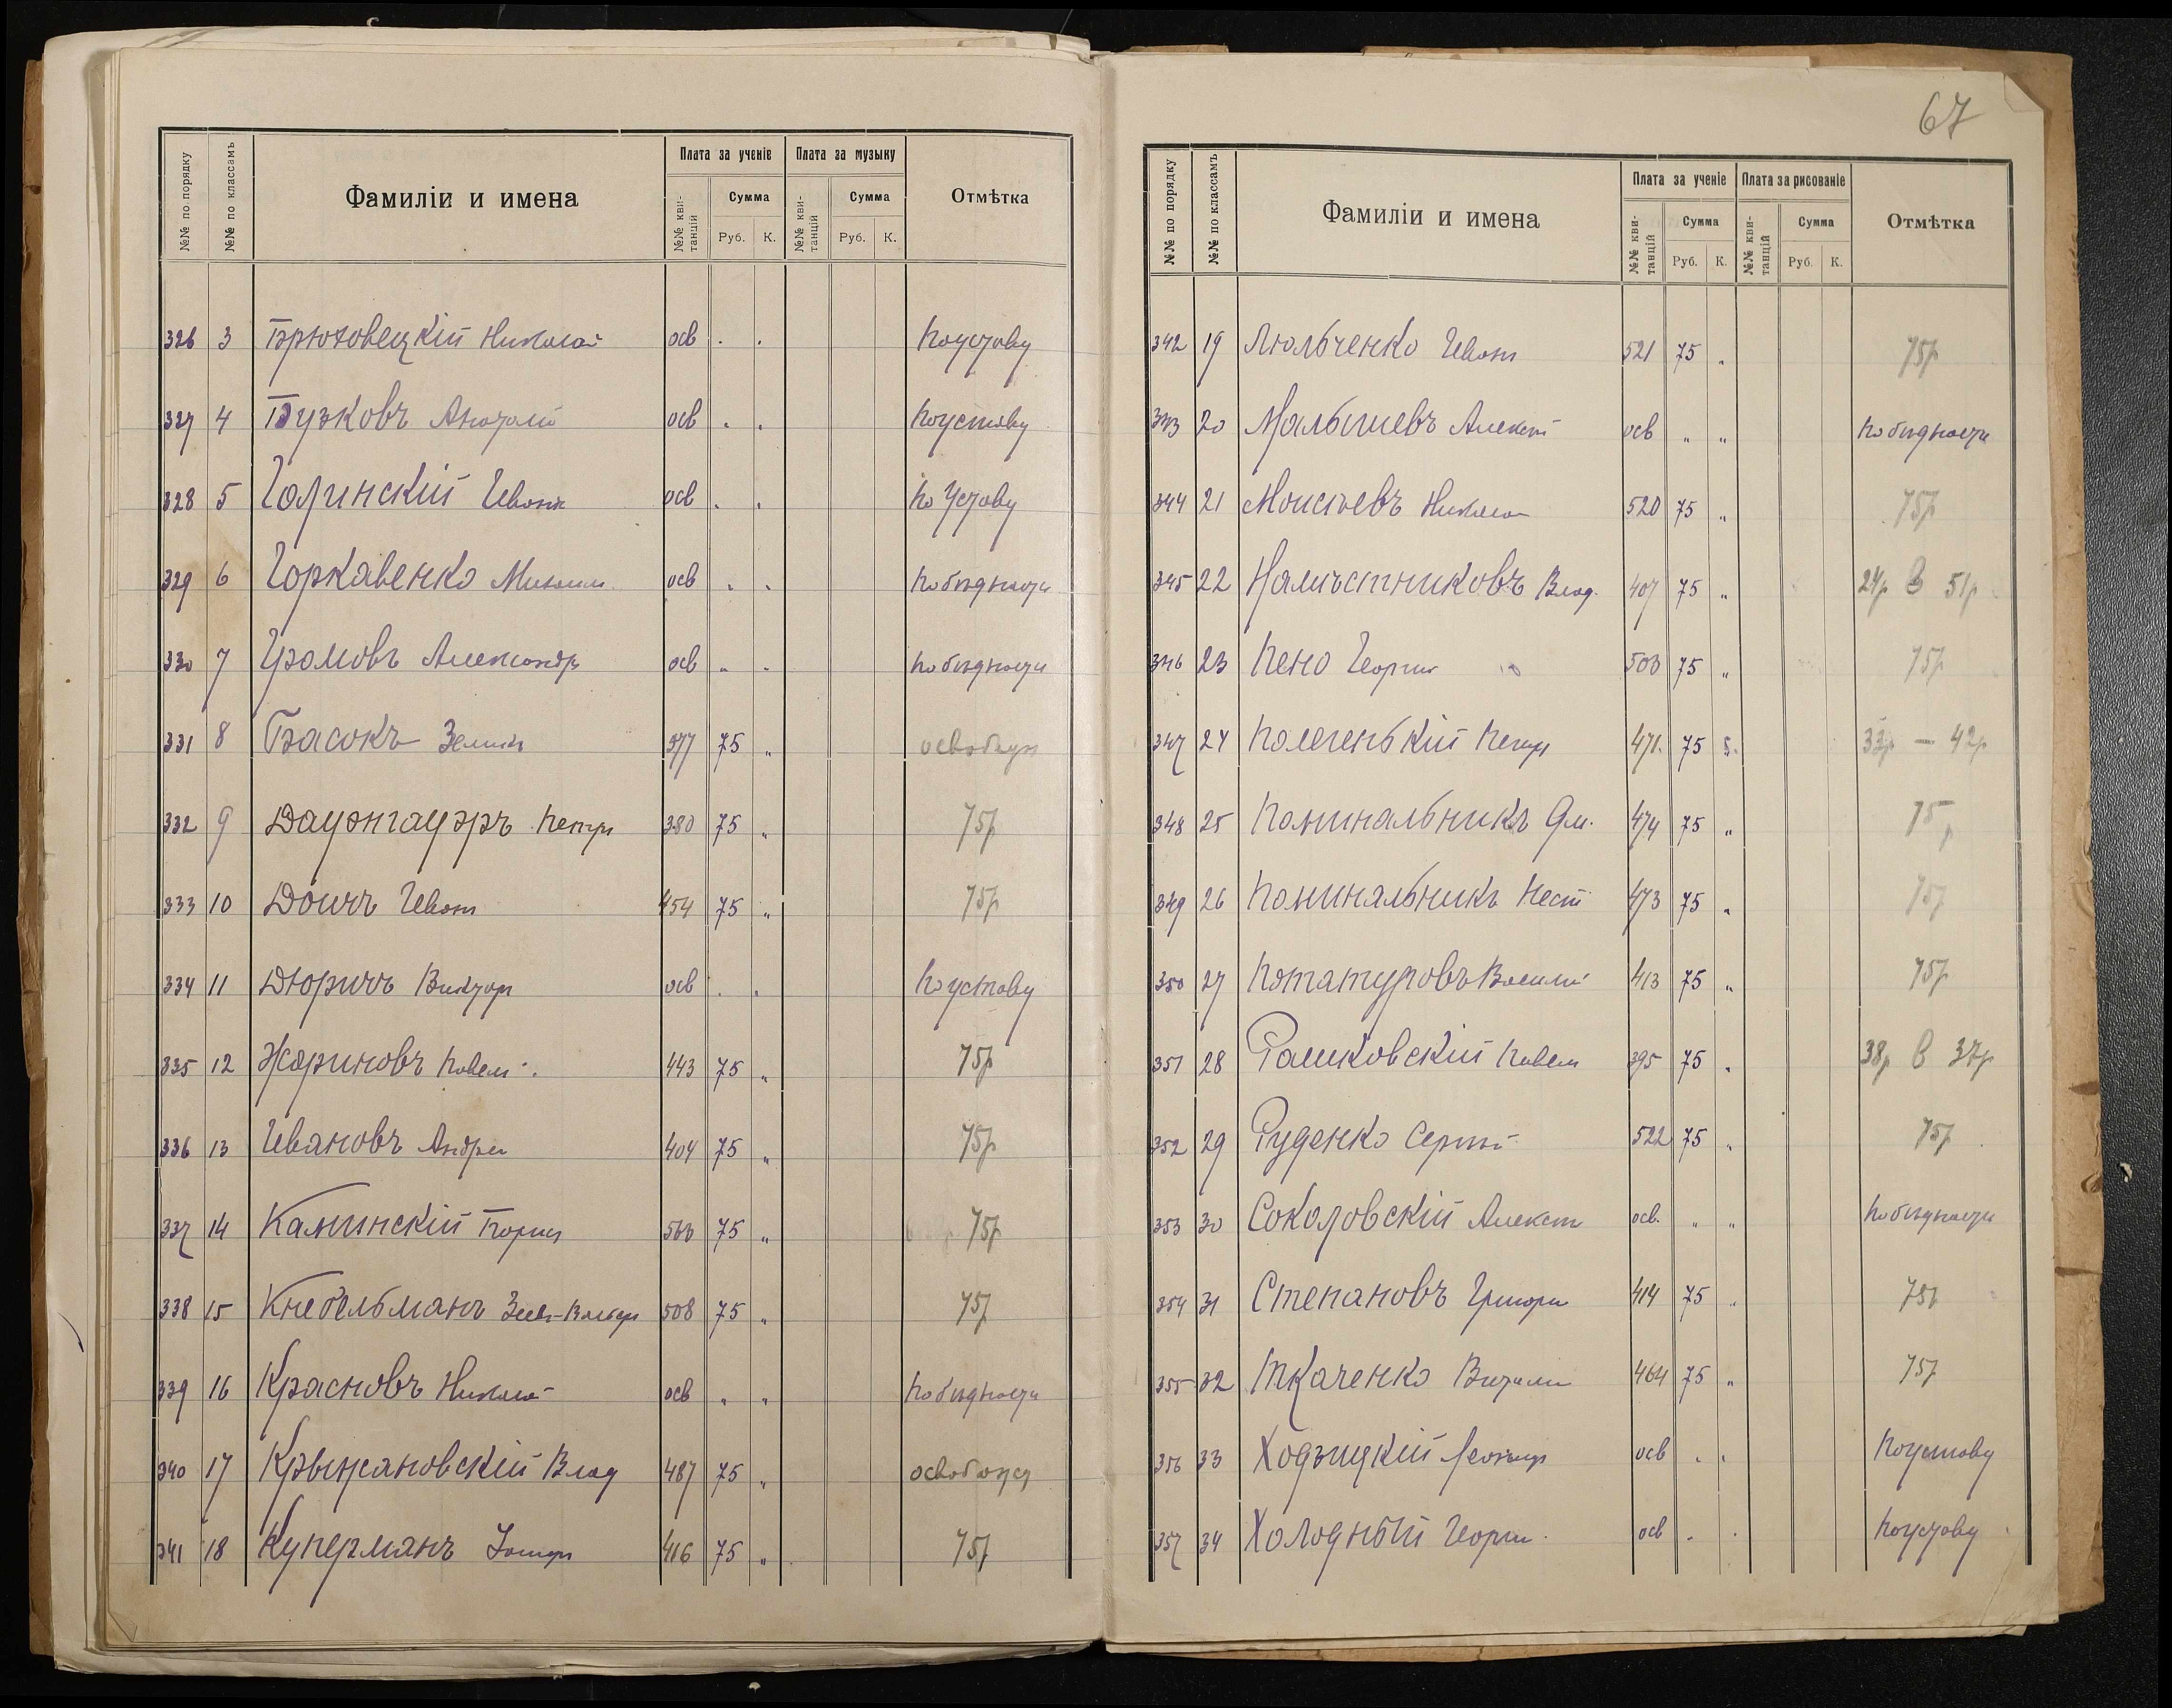 67
№№ по порядку №№ по классамъ Фамиліи и имена Плата за ученіе Плата за музыку Отмѣтка
№№ кви-танцій Сумма №№ кви-танцій Сумма
Руб. К. Руб. К.
326 3 Брюховецкій Николай осв . . По уставу
327 4 Бузковъ Анатолій осв . . По уставу
328 5 Голинскій Иванъ осв . . По Уставу
329 6 Горкавенко Михаил осв . . По бѣдности
330 7 Громовъ Александръ осв „ . По бѣдности
331 8 Гбасокъ 377 75 „
332 9 Дауэнгауэръ Петръ 380 75 „ 75р
333 10 Доичъ Иванъ 454 75 „ 75р
334 11 Дюричъ Викторъ осв . . По уставу
335 12 Жариновъ Павелъ 443 75 „ 75р
336 13 Ивановъ Андрей 404 75 „ 75р
337 14 Каминскій Борисъ 75 „ 75р
338 15 Кнебельманъ Зеевъ-Вольфъ 508 75 „ 75р
339 16 Красновъ Николай осв „ „ По бѣдности
340 17 Крыжановскій Влад 487 75 „
341 18 Куперманъ 416 75 „ 75р
№№ по порядку №№ по классамъ Фамиліи и имена Плата за ученіе Плата за рисованіе Отмѣтка
№№ кви-танцій Сумма №№ кви-танцій Сумма
Руб. К. Руб. К.
342 19 Люльченко Иванъ 521 75 „ 75р
343 20 Малышевъ Алексѣй осв „ „ По бѣдности
344 21 Моисѣевъ Николай 520 75 „ 75р
345 22 Намѣстниковъ Влад. 407 75 „ 24р В 51р
346 23 Пено Георгій 503 75 „ 75р
347 24 Полегенькій Петръ 471 75 33р — 42р
348 25 Понинальникъ Дм. 474 75 „ 75р
349 26 Понинальникъ Нест 473 75 „ 75р
350 27 Потатуровъ Василій 413 75 „ 75р
351 28 Рашковскій Павелъ 395 75 „ 38р В 37р
352 29 Руденко Сергѣй 522 75 „ 75р
353 30 Соколовскій Алекси осв. „ „ По бѣдности
354 31 Степановъ Григори 414 75 „ 75р
355 32 Ткаченко Витали 464 75 „ 75р
356 33 Ходзицкій Леонидъ осв . . По уставу
357 34 Холодный Георги. осв . . По уставу